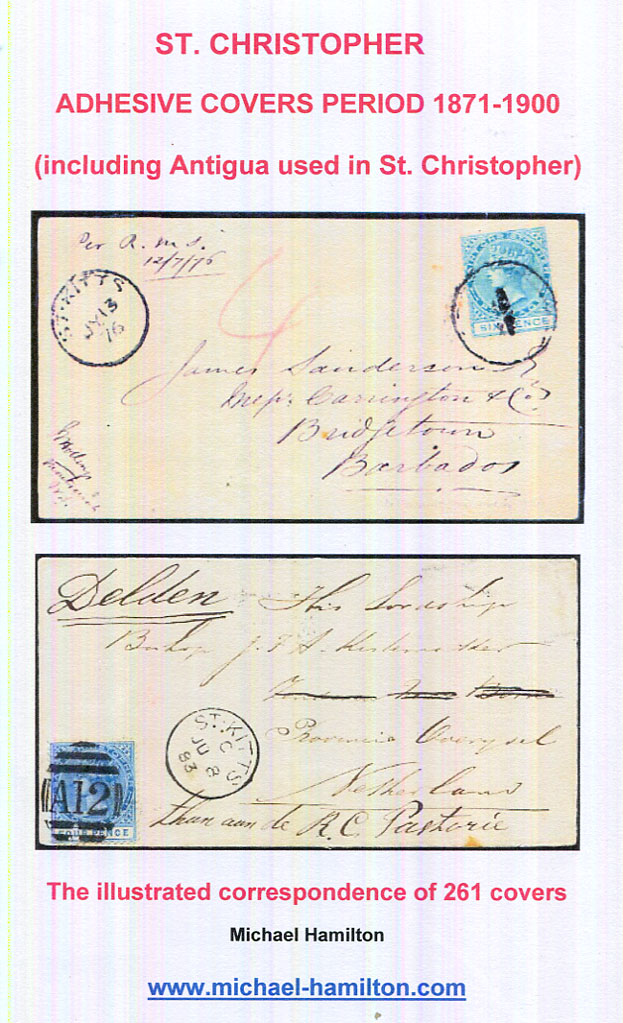 ST. CHRISTOPHER
ADHESIVE COVERS PERIOD 1871-1900
(including Antigua used in St. Christopher)
Per R.M.S.
12/7/76
ST. KITTS
JY 13
76
SIX PENCE
4
James Sanderson
Messrs Carrington & Co
Bridgetown
Barbados
Delden
His Lordship
Bishop J. F. A.
Provincie Overysel
Netherland
R.C. Pastorie
ST. KITTS
C
JU 8
83
A12
FOUR PENCE
The illustrated correspondence of 261 covers
Michael Hamilton
www.michael-hamilton.com